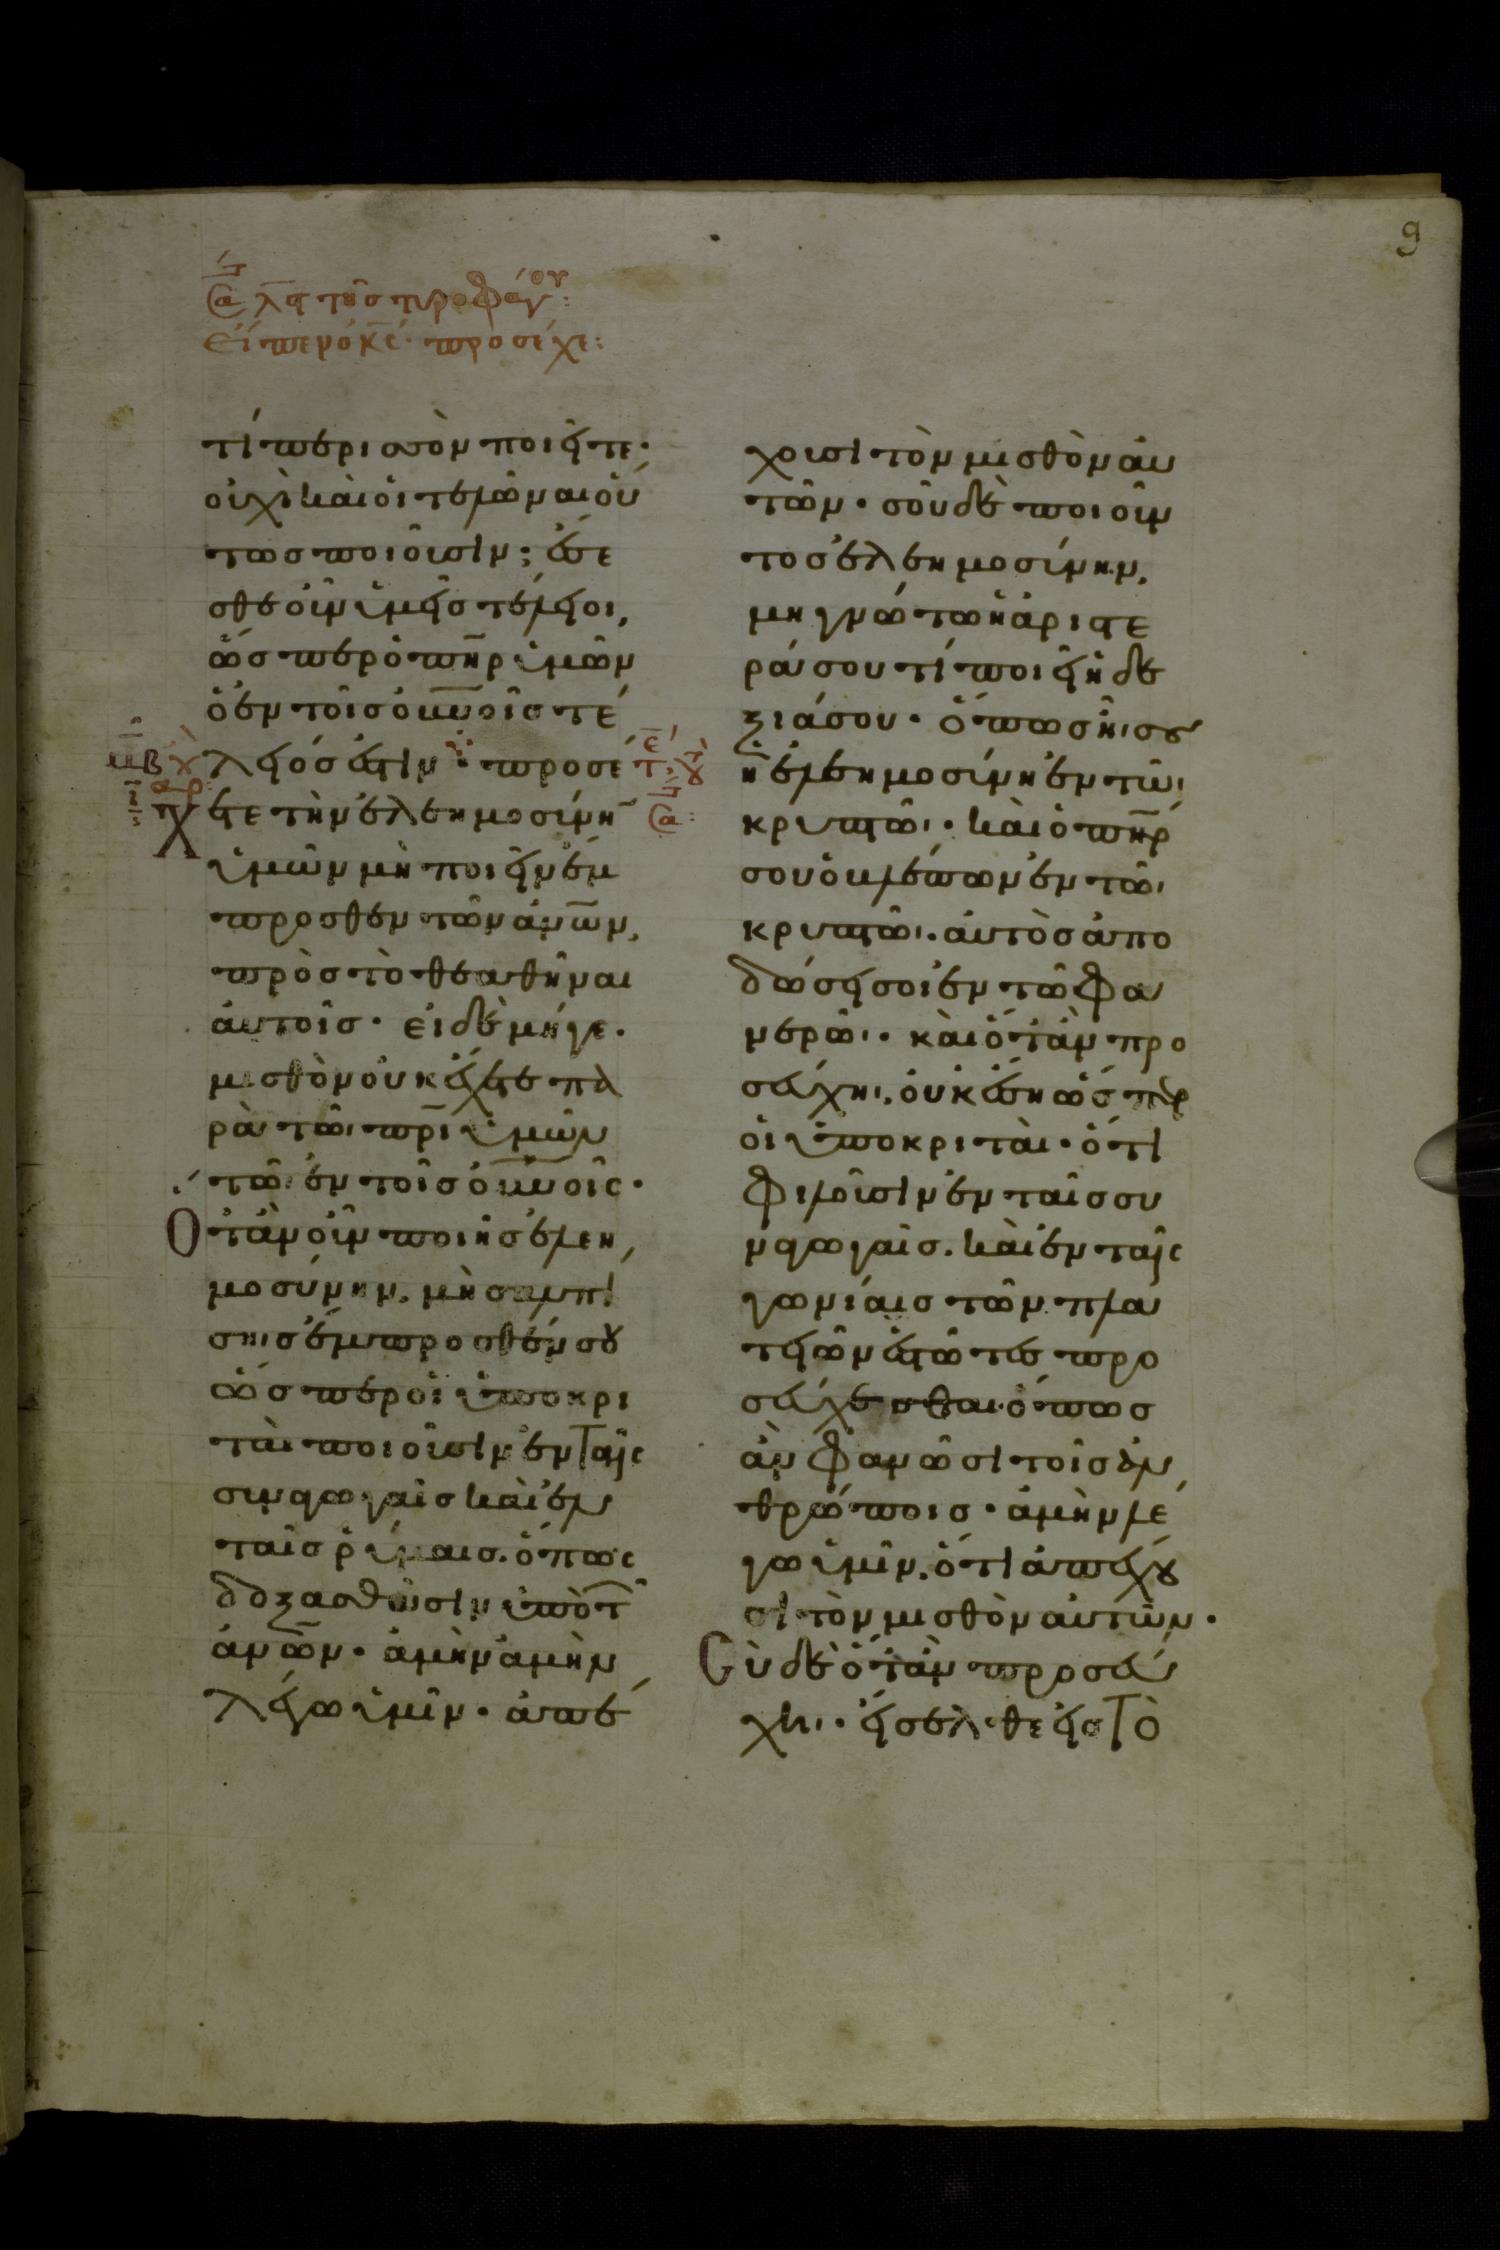 9
τῆς τυροφάγου:
Εἶπεν ὁ κς· προσέχε:
τί περισσὸν ποιεῖτε·
οὐχὶ καὶ οἱ τελῶναι οὕ
τως ποιοῦσιν; ἔσε
σθε οὖν ὑμεῖς τέλειοι,
ὥσπερ ὁ πηρ ὑμῶν
ὁ ἐν τοῖς οὐνοῖς τέ
λειός ἐστιν· προσέ
χετε τὴν ἐλεημοσύνην
ὑμῶν μὴ ποιεῖν ἔμ
προσθεν τῶν ἀνων,
πρὸς τὸ θεαθῆναι
αὐτοῖς· εἰ δὲ μήγε·
μισθὸν οὐκ ἔχετε πα
ρὰ τῶι πρι ὑμῶν
τῶ ἐν τοῖς οὐνοῖς·
Ὅταν οὖν ποιῆς ἐλεη
μοσύνην, μὴ σαλπί
σηις ἔμπροσθέν σου
ὥσπερ οἱ ὑποκρι
ταὶ ποιοῦσιν ἐν ταῖς
συναγωγαῖς καὶ ἐν
ταῖς ῥύμαις. ὅπως
δοξασθῶσιν ὑπὸ τῶν
ἀνων· ἀμὴν ἀμὴν
λέγω ὑμῖν· ἀπέ
χουσι τὸν μισθὸν αὐ
τῶν· σοῦ δὲ ποιοῦν
τος ἐλεημοσύνην,
μη γνώτω ἡ ἀριστε
ρά σου τί ποιεῖ ἡ δε
ξιά σου· ὅπως ῆι σου
ἡ ἐλεημοσύνη ἐν τῶι
κρυπτῶι· καὶ ὁ πηρ
σου ὁ βλέπων ἐν τῶι
κρυπτῶι. αὐτὸς ἀπο
δώσει σοι ἐν τῶ φα
νερῶι· καὶ ὅταν προ
σεύχηι, οὐκ ἔση ὥσπερ
οἱ ὑποκριταὶ· ὅτι
φιλοῦσιν ἐν ταῖς συ
ναγωγαῖς. καὶ ἐν ταῖς
γωνίαις τῶν πλα
τειῶν ἑστῶτες προ
σεύχεσθαι· ὅπως
ἂν φανῶσι τοῖς ἀν
θρώποις· ἀμὴν λέ
γω ὑμῖν, ὅτι ἀπέχου
σι τὸν μισθὸν αὐτῶν·
Σὺ δὲ ὅταν προσεύ
χηι· εἴσελθε εἰς τὸ